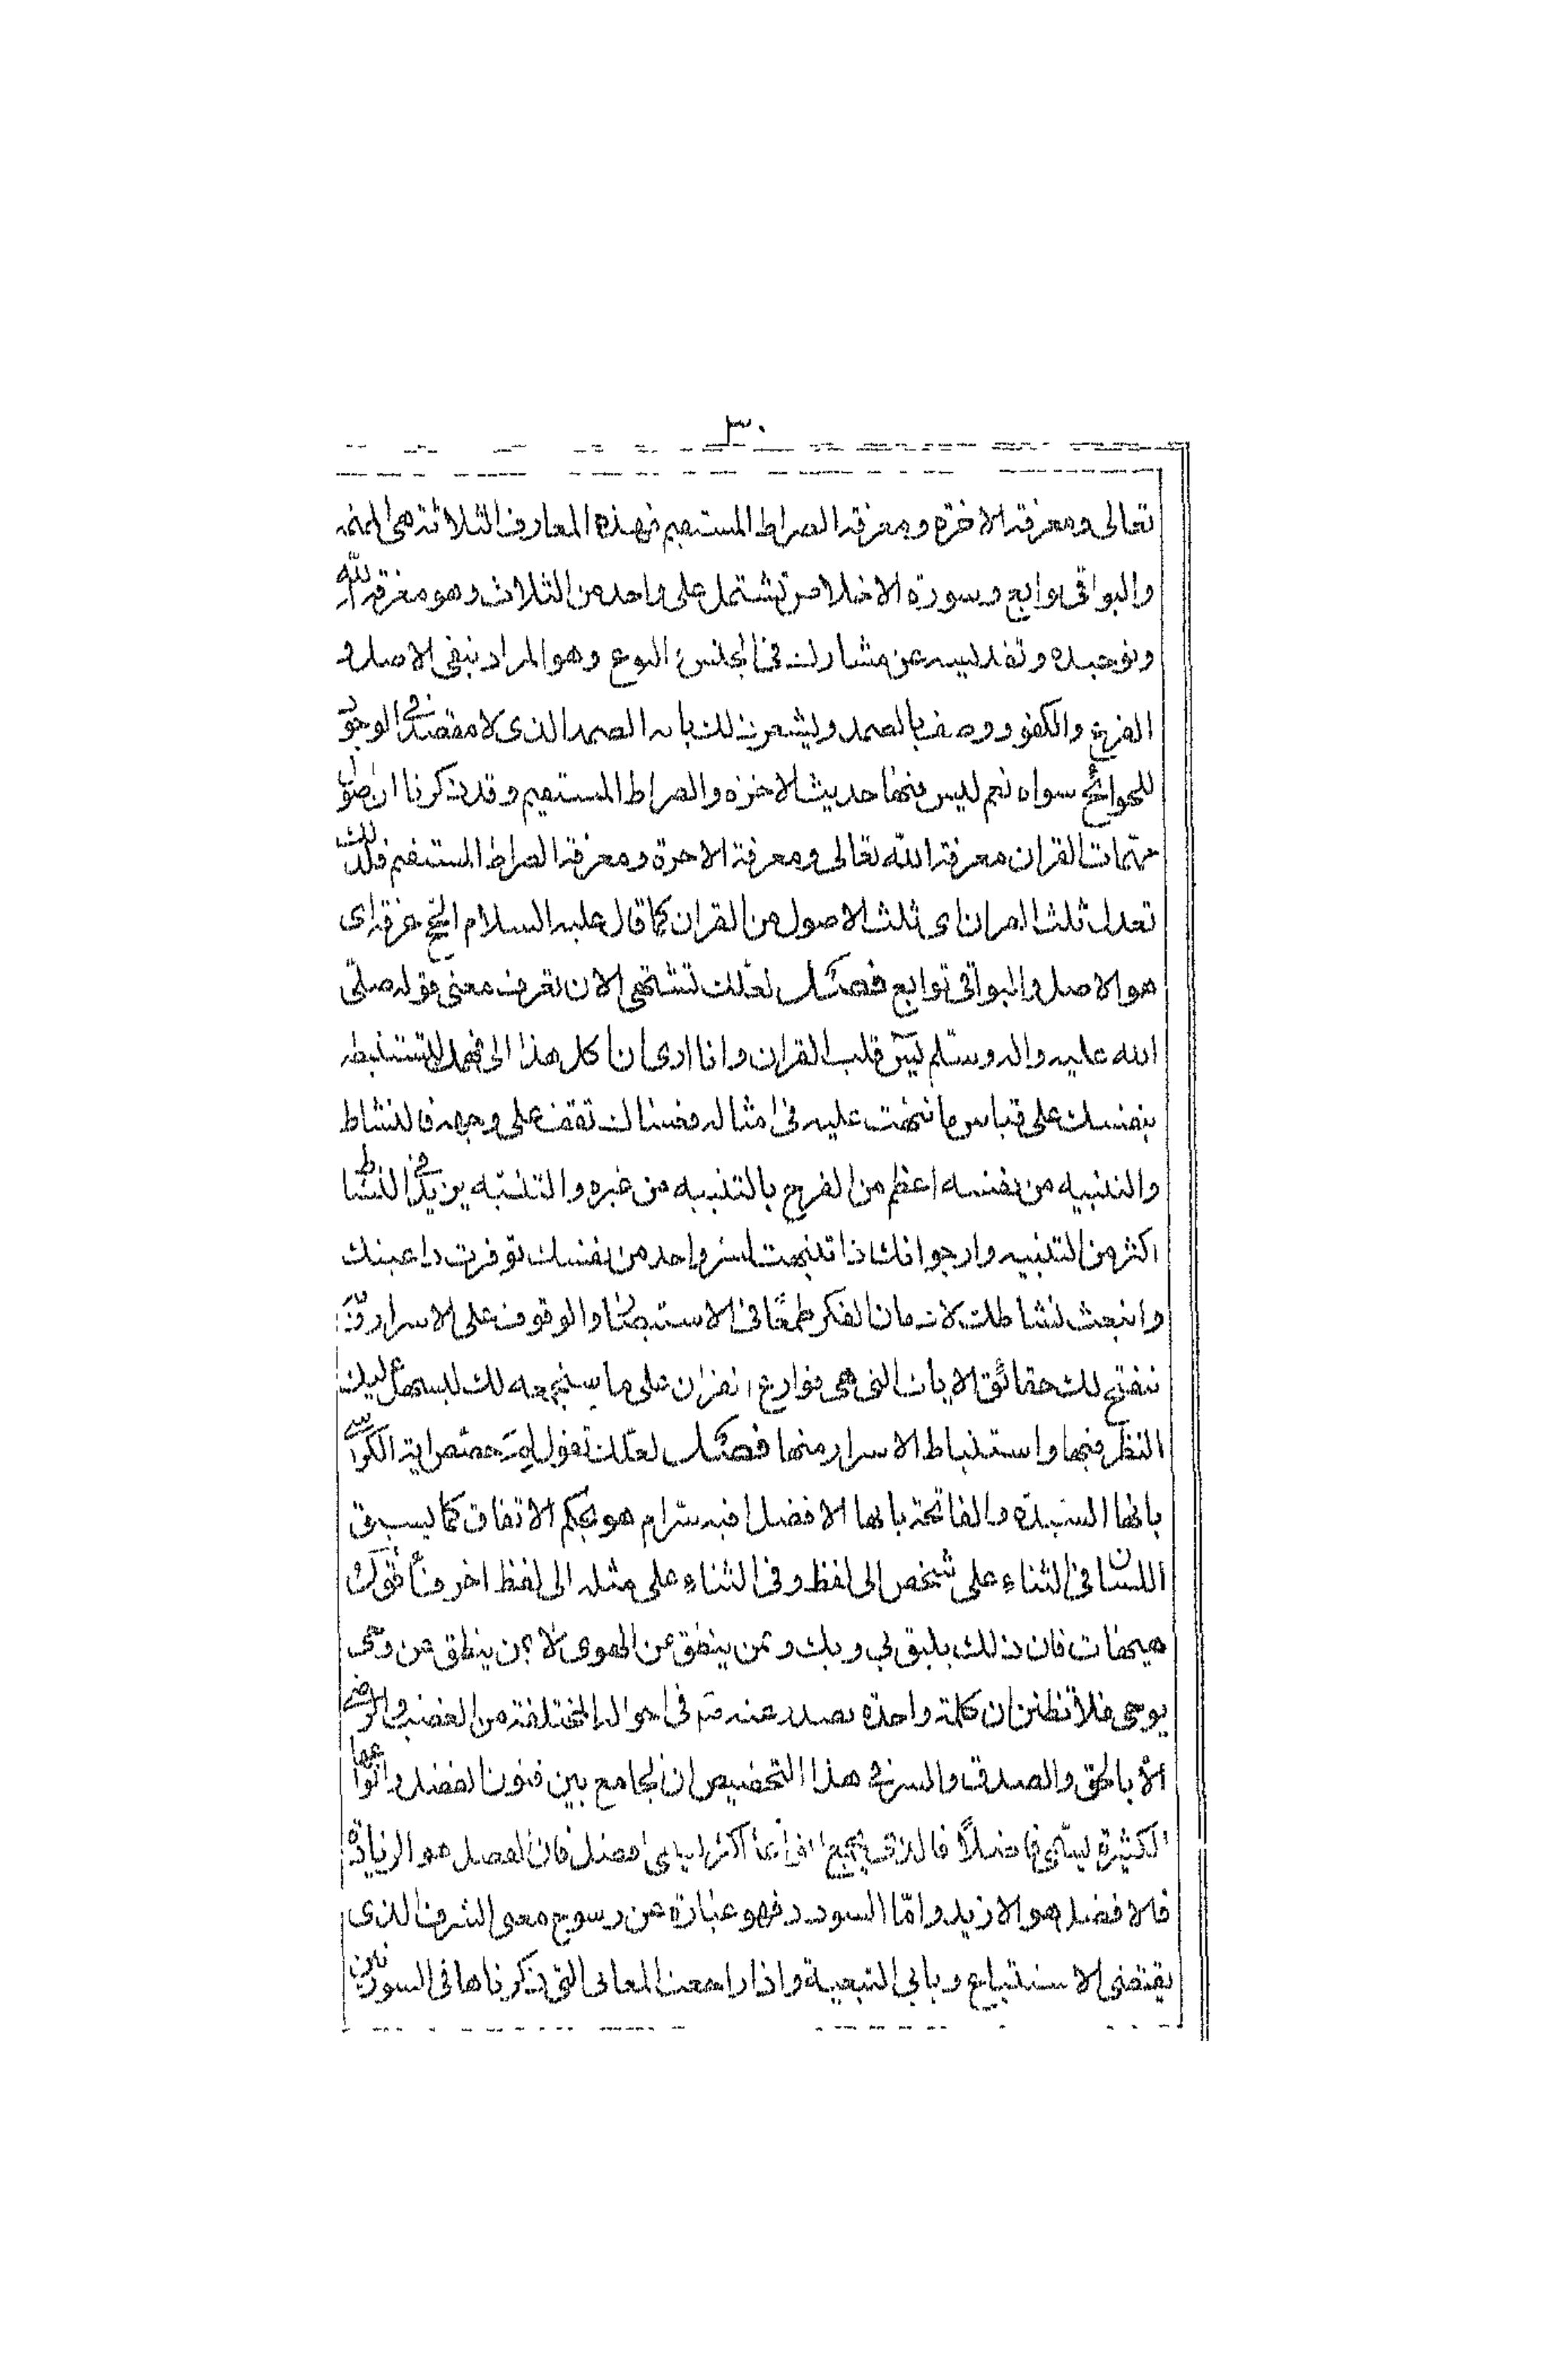 ٣٠
تعالى ومعرفة الاخرة ومعرفة الصراط المستقيم فهذه المعارف الثلاثة هى المهمه
والبواقى توابع وسورة الاخلاص تشتمل على واحد من الثلاث وهو معرفة الله
وتوحيده وتقديسه عن مشارك فى الجنس والنوع وهو المراد بنفى الاصل و
الفرع والكفو ووصف بالصمد وليشعر ذلك بانه الصمد الذى لا مقصد فى الوجود
للحوائج سواه نعم ليس فيها حديث الاخرة والصراط المستقيم وقد ذكرنا ان اصول
مهمات القران معرفة الله تعالى ومعرفة الاخرة ومعرفة الصراط المستقيم فلذلك
تعدل ثلث القران اى ثلث الاصول من القران كما قال عليه السلام الحج عرفة اى
هو الاصل والبواقى توابع فصل لعلك تشتهى الان تعرف معنى قوله صلى
الله عليه واله وسلم يس قلب القران وانا ارى ان اكل هذا الى فهمك لتستنبطه
بنفسك على قياس ما نبهت عليه فى امثاله فعساك تقف على وجهه فالنشاط
والتنبيه من نفسه اعظم من الفرح بالتنبيه من غيره والتنبه يزيد فى النشاط
اكثر من التنبيه وارجوا انك اذا تنبهت لسر واحد من نفسك توفرت داعيتك
وانبعث نشاطك لادمان الفكر طمعا فى الاستبصار والوقوف على الاسرار وبه
ننفتح لك حقائق الايات التى هى قوارع القران على ما سنجمعه لك ليسهل عليك
النظر فيها واستنباط الاسرار منها فصل لعلك تقول لم خصص اية الكرسى
بانها السيدة والفاتحة بانها الافضل افيه سر ام هو بحكم الاتفاق كما يسبق
اللسان فى الثناء على شخص الى لفظ وفى الثناء على مثله الى لفظ اخر فاقول
هيهات فان ذلك يليق بى وبك وبمن ينطق عن الهوى لا بمن ينطق عن وحى
يوحى فلا تظنن ان كلمة واحدة تصدر عنه ص فى احواله المختلفة من الغضب والرضى
الا بالحق والصدق والسر فى هذا التخصيص ان الجامع بين فنون الفضل وانواعها
الكثيرة يسمى فاضلا فالذى يجمع انواعا اكثر يسمى افضل فان الفضل هو الزيادة
فالافضل هو الازيد واما السودد فهو عبارة عن رسوخ معنى الشرف الذى
يقتضى الاستتباع ويابى التبعية واذا راجعت المعانى التى ذكرناها فى السورتين